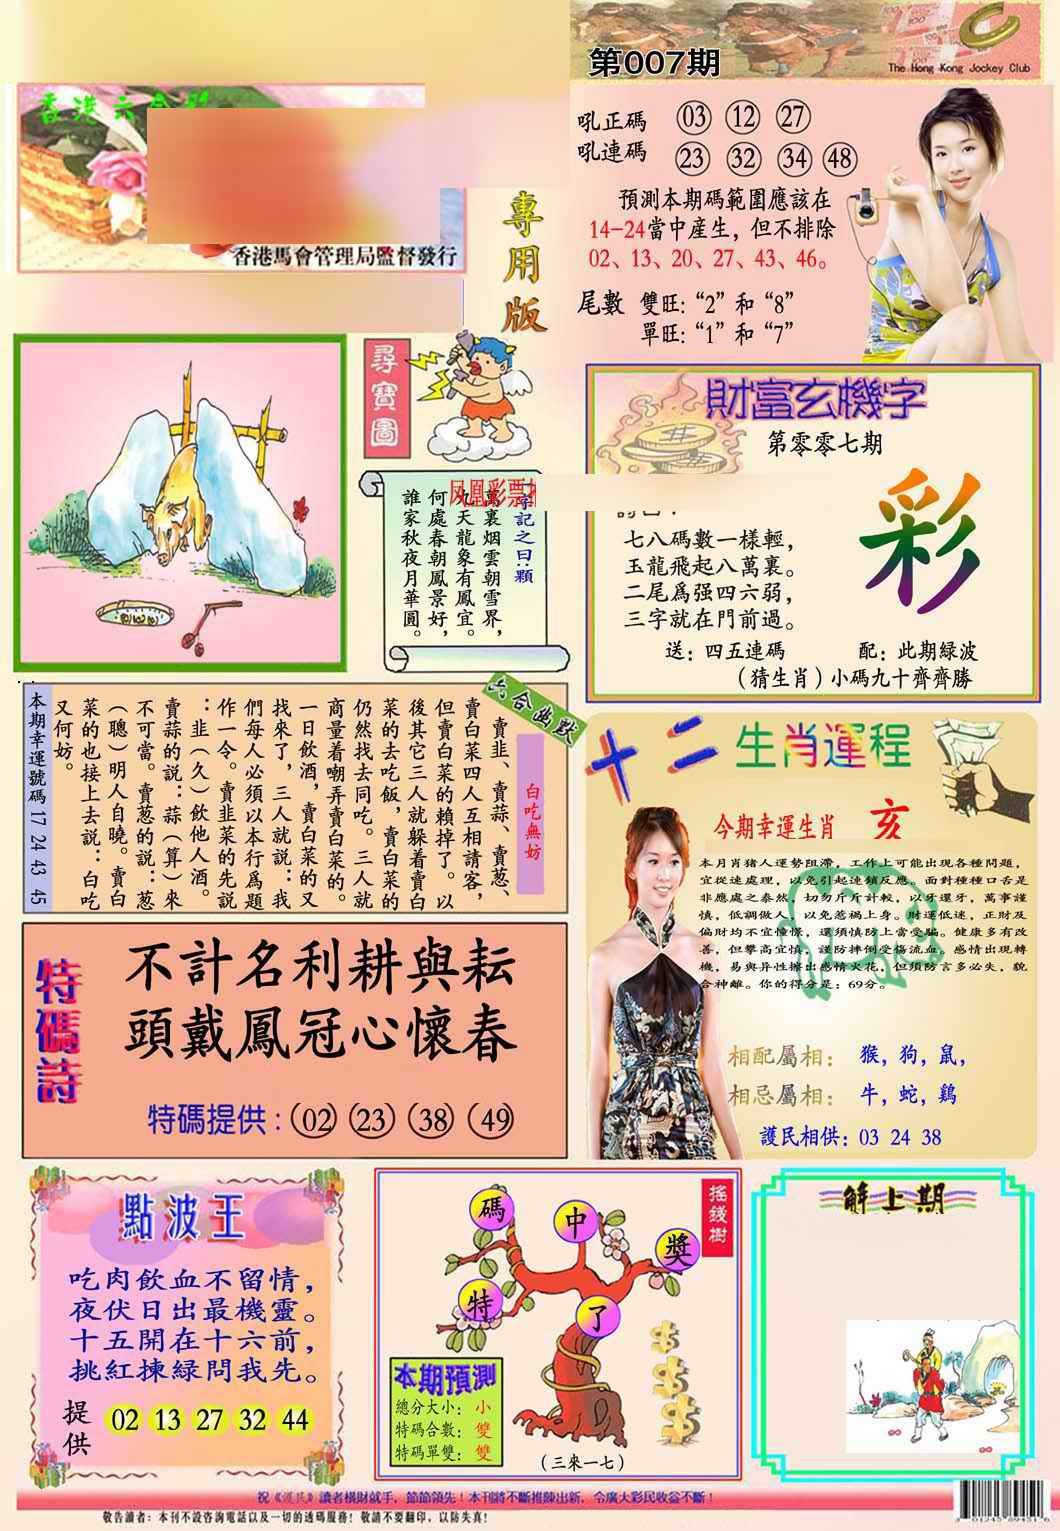 第007期
The Hong Kong Jockey Club
香港六合
香港馬會管理局監督發行
專用版
吼正碼 03 12 27
吼連碼 23 32 34 48
預測本期碼範圍應該在
14-24當中産生，但不排除
02、13、20、27、43、46。
尾數 雙旺:“2”和“8”
單旺:“1”和“7”
尋寶圖
凤凰彩票
字記之曰:顆
萬裏烟雲朝雪界，
九天龍象有鳳宜。
何處春朝鳳景好，
誰家秋夜月華圓。
財富玄機字
第零零七期
七八碼數一樣輕，
玉龍飛起八萬裏。
二尾爲强四六弱，
三字就在門前過。
彩
送：四五連碼
配：此期緑波
（猜生肖）小碼九十齊齊勝
六合幽默
白吃無妨
賣韭、賣蒜、賣葱、
賣白菜四人互相請客，
但賣白菜的賴掉了。以
後其它三人就躲着賣白
菜的去吃飯，賣白菜的
仍然找去同吃。三人就
商量着嘲弄賣白菜的。
一日飲酒，賣白菜的又
找來了，三人就説：我
們每人必須以本行爲題
作一令。賣韭菜的先説
：韭（久）飲他人酒。
賣蒜的説：蒜（算）來
不可當。賣葱的説：葱
（聰）明人自曉。賣白
菜的也接上去説：白吃
又何妨。
本期幸運號碼 17 24 43 45
十二生肖運程
今期幸運生肖 亥
本月肖猪人運勢阻滯，工作上可能出現各種問題，
宜從速處理，以免引起連鎖反應。面對種種口舌是
非應處之泰然，切勿斤斤計較，以牙還牙，萬事謹
慎，低調做人，以免惹禍上身。財運低迷，正財及
偏財均不宜憧憬，還須慎防上當受騙。健康多有改
善，但攀高宜慎，謹防摔倒受傷流血。感情出現轉
機，易與异性擦出感情火花，但須防言多必失，貌
合神離。你的得分是：69分。
相配屬相：猴，狗，鼠，
相忌屬相：牛，蛇，鷄
護民相供：03 24 38
特碼詩
不計名利耕與耘
頭戴鳳冠心懷春
特碼提供：02 23 38 49
點波王
吃肉飲血不留情，
夜伏日出最機靈。
十五開在十六前，
挑紅揀緑問我先。
提供 02 13 27 32 44
搖錢樹
碼 中 獎
特 了
本期預測
總分大小：小
特碼合數：雙
特碼單雙：雙
（三來一七）
解上期
祝《護民》讀者橫財就手，節節領先！本刊將不斷推陳出新，令廣大彩民收益不斷！
敬告讀者：本刊不設咨詢電話以及一切的透碼服務！敬請不要翻印，以防失真！